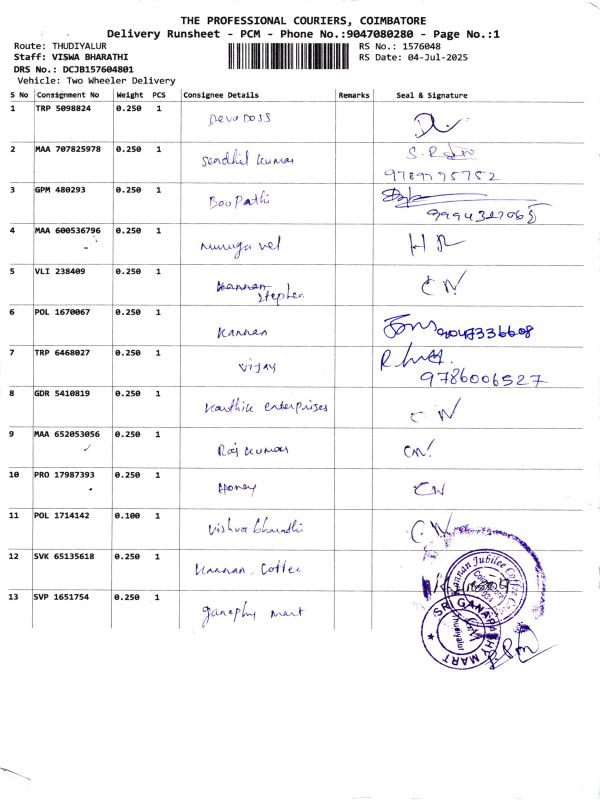 THE PROFESSIONAL COURIERS, COIMBATORE
Delivery Runsheet - PCM - Phone No.:9047080280 - Page No.:1
Route: THUDIYALUR
RS No.: 1576048
Staff: VISWA BHARATHI
RS Date: 04-Jul-2025
DRS No.: DCJB157604801
Vehicle: Two Wheeler Delivery
S No Consignment No Weight PCS Consignee Details Remarks Seal & Signature
1 TRP 5098824 0.250 1 Deva Doss
2 MAA 707825978 0.250 1 Sendhil kumar
9789795752
3 GPM 480293 0.250 1 Boopathi
4 MAA 600536796 0.250 1 murugavel
5 VLI 238409 0.250 1 Kannan
Stephen
6 POL 1670067 0.250 1 Kannan 9047336608
7 TRP 6468027 0.250 1 Vijay
9786006527
8 GDR 5410819 0.250 1 Karthik enterprises CN
9 MAA 652053056 0.250 1 Raj Kumar CN
10 PRO 17987393 0.250 1 Honey CN
11 POL 1714142 0.100 1 Vishva bharathi CN
12 SVK 65135618 0.250 1 Kannan Coffee
Kannan Jubilee Coffee
13 SVP 1651754 0.250 1 ganaphy mart
SRI GANAPATHY MART
Thudiyalur